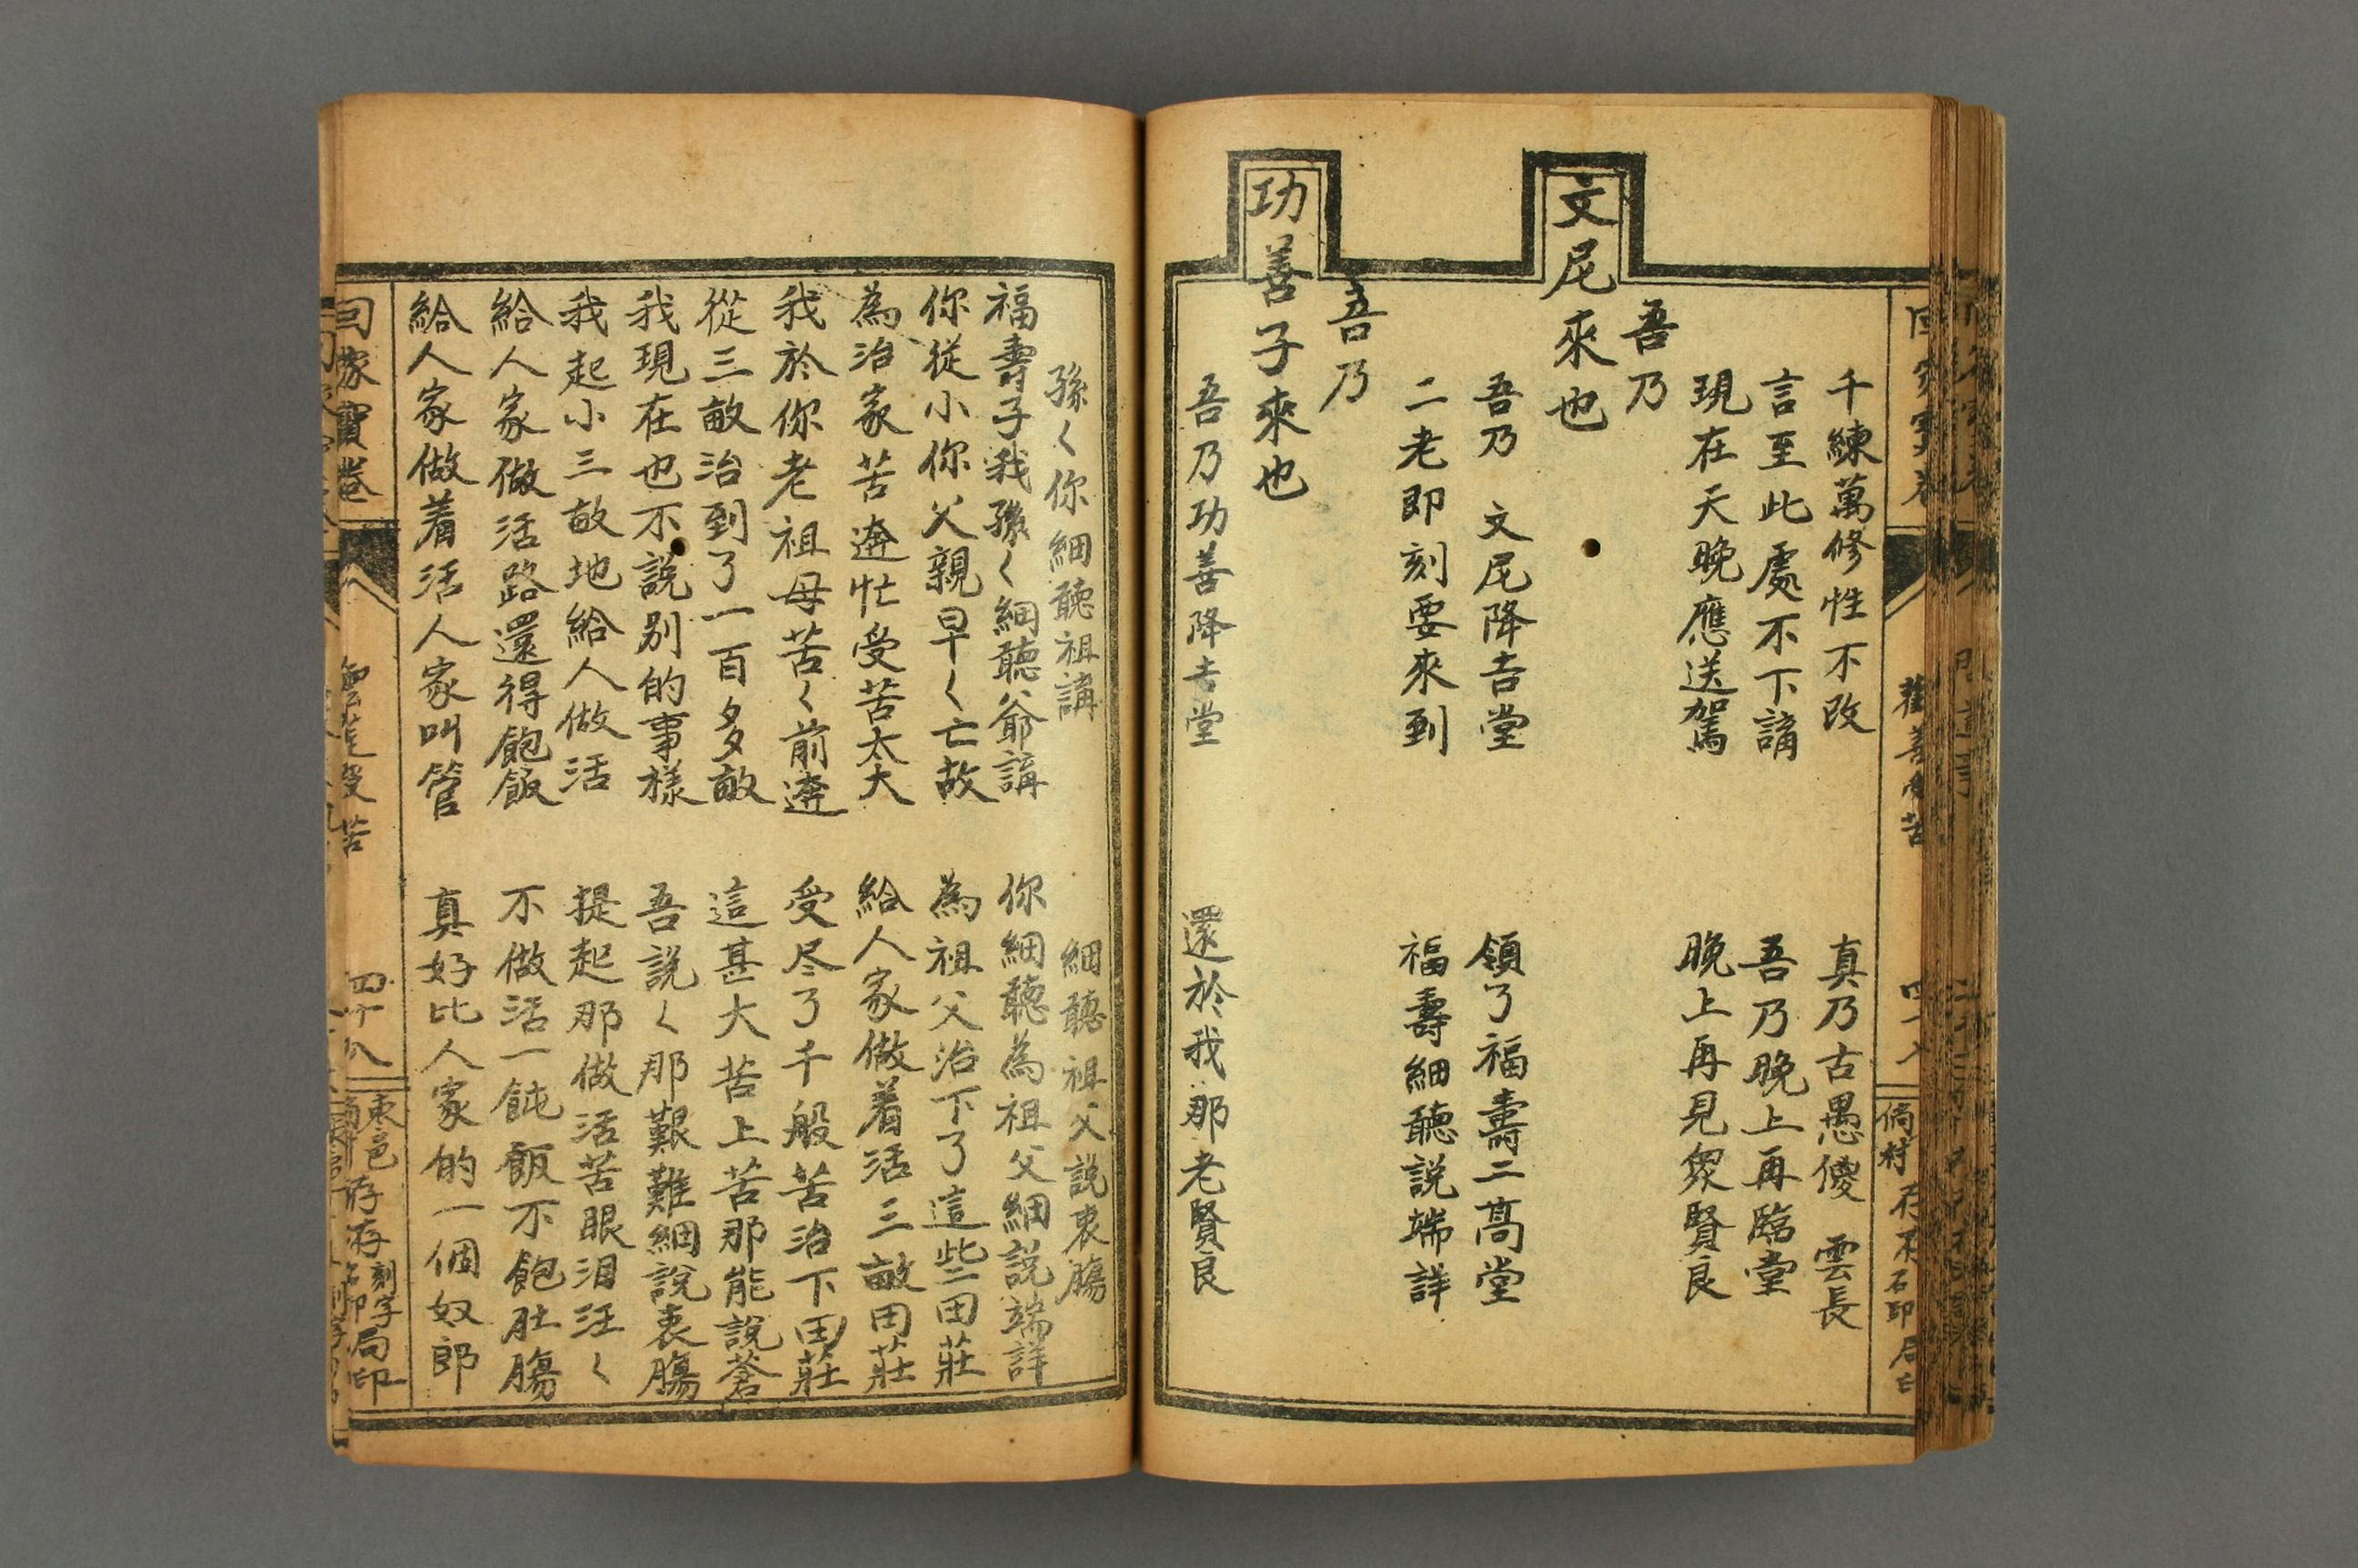 千練萬修性不改　真乃古愚傻　雲長
言至此處不下講　吾乃晚上再臨堂
現在天晚應送駕　晚上再見衆賢良
吾乃
文尼來也
吾乃　文尼降吉堂　領了福壽二髙堂
二老即刻要來到　福壽細聽説端詳
吾乃
功善子來也
吾乃功善降吉堂　還於我那老賢良
孫く你細聽祖講　細聽祖父説衷膓
福壽子我孫く細聽爺講　你細聽為祖父細説端詳
你従小你父親早く亡故　為祖父治下了這些田莊
為治家苦逩忙受苦太大　給人家做着活三畝田莊
我於你老祖母苦く前逩　受尽了千般苦治下田莊
從三畝治到了一百多畝　這甚大苦上苦那能說蒼
我現在也不說别的事様　吾說く那艱難細說衷膓
我起小三畝地給人做活　提起那做活苦眼泪汪く
給人家做活路還得飽飯　不做活一飩飯不飽肚膓
給人家做着活人家叫管　真好比人家的一個奴郎
回家寳卷
受苦
四十八
棗邑
刻字
局印